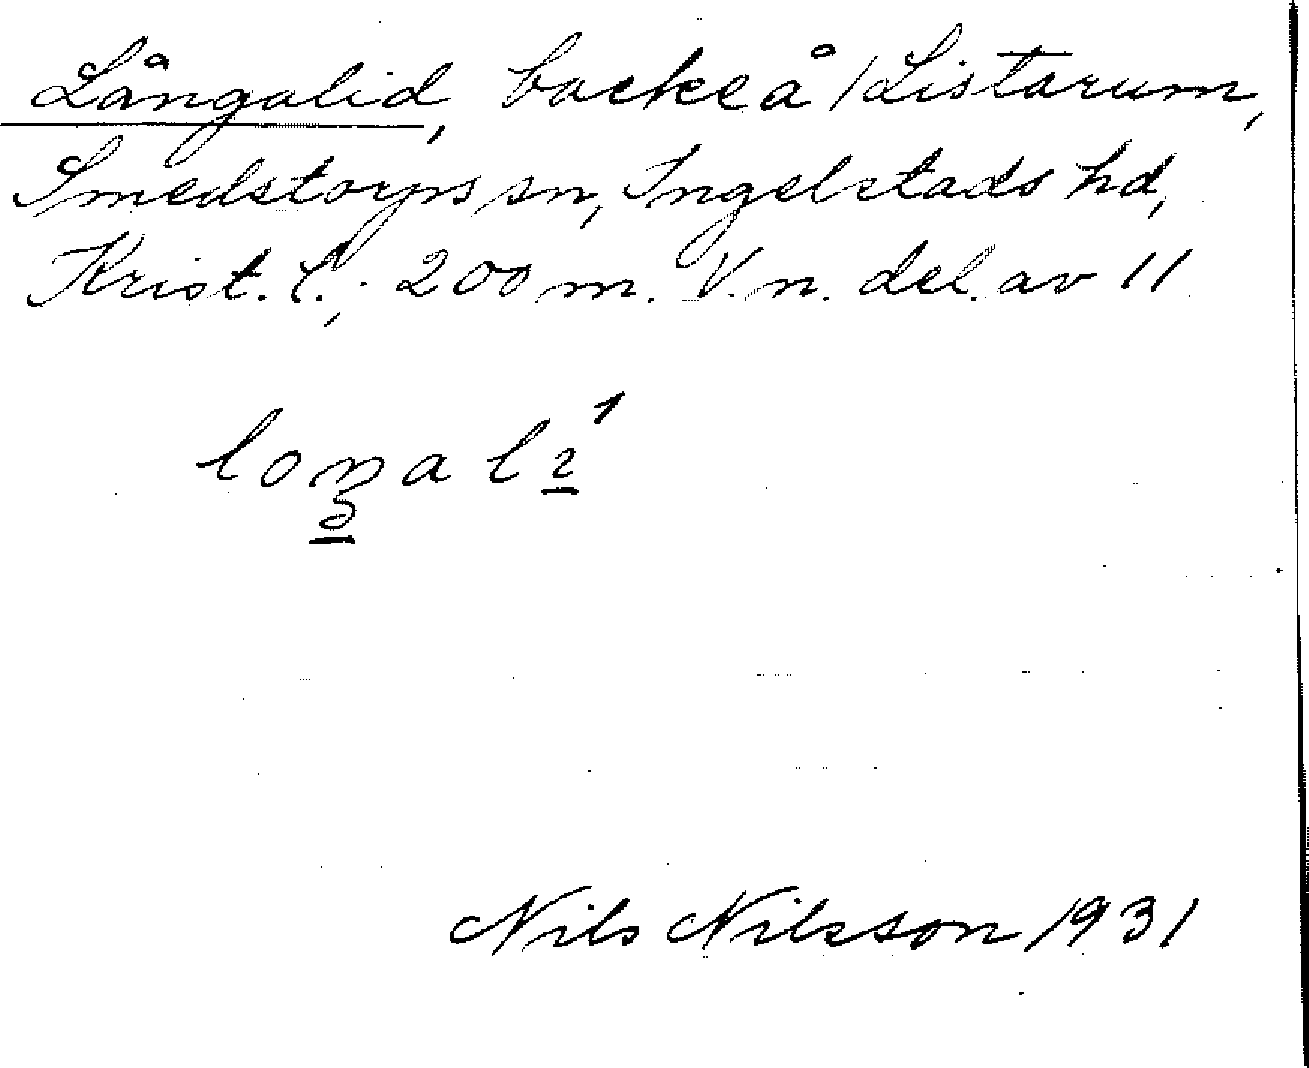 Långalid, backe å 1 Listarum,
Smedstorps sn, Ingelstads hd,
Krist. l.; 200 m. V. n. del. av 11
Nils Nilsson 1931